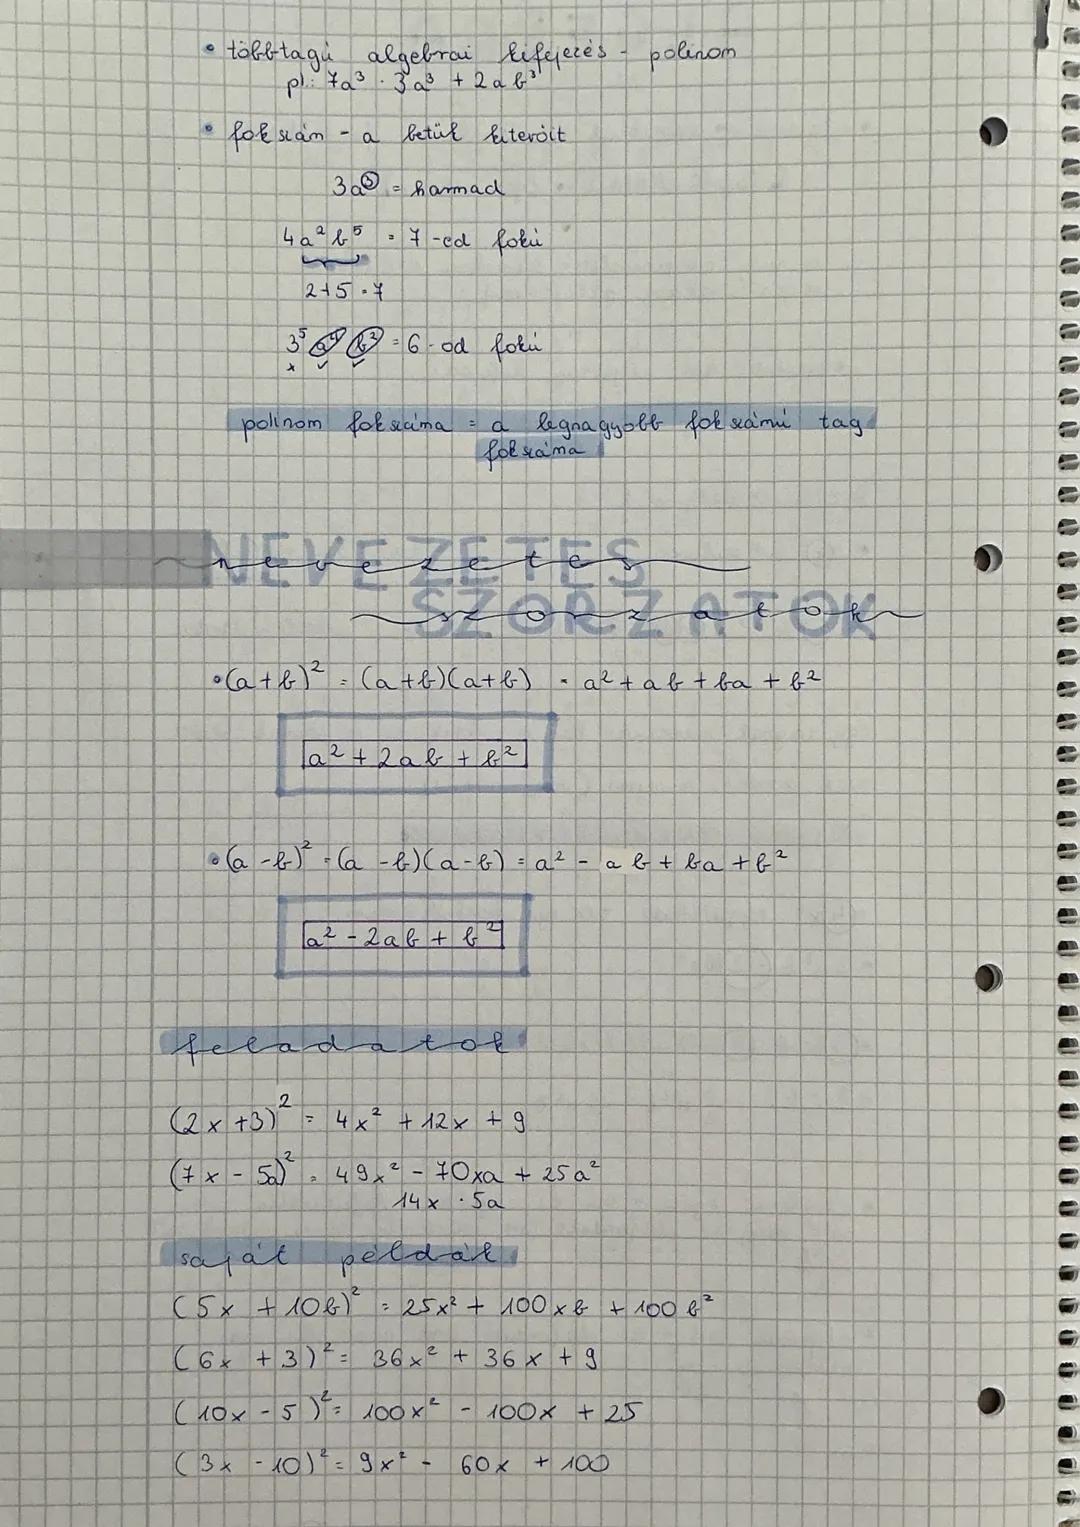 • többtagú algebrai kifejezés - polinom
pl.: 7a³ · 3a³ + 2ab³
• fokszám - a betűk kitevőit
3a³ = harmad
4a²b⁵ = 7-ed fokú
2+5=7
3⁵ a⁴ b² = 6-od fokú
polinom fokszáma = a legnagyobb fokszámú tag
fokszáma
NEVEZETES
nevezetes
SZORZATOK
szorzatok
• (a+b)² = (a+b)(a+b) = a² + ab + ba + b²
a² + 2ab + b²
• (a-b)² = (a-b)(a-b) = a² - ab + ba + b²
a² - 2ab + b²
feladatok
(2x+3)² = 4x² + 12x + 9
(7x - 5a)² = 49x² - 70xa + 25a²
14x · 5a
saját példák
(5x + 10b)² = 25x² + 100xb + 100b²
(6x + 3)² = 36x² + 36x + 9
(10x - 5)² = 100x² - 100x + 25
(3x - 10)² = 9x² - 60x + 100